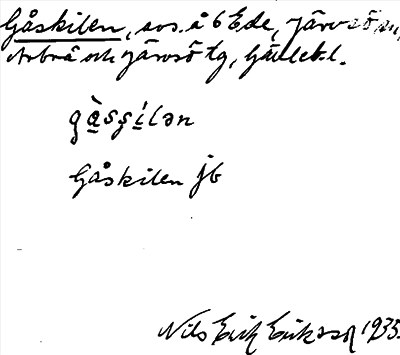 Gåskilen, sos. å 6 Ede, Järvsö sn,
Arbrå och Järvsö tg, Gävleb. l.
gàsʂílən
Gåskilen jb
Nils Erik Eriksson 1935.